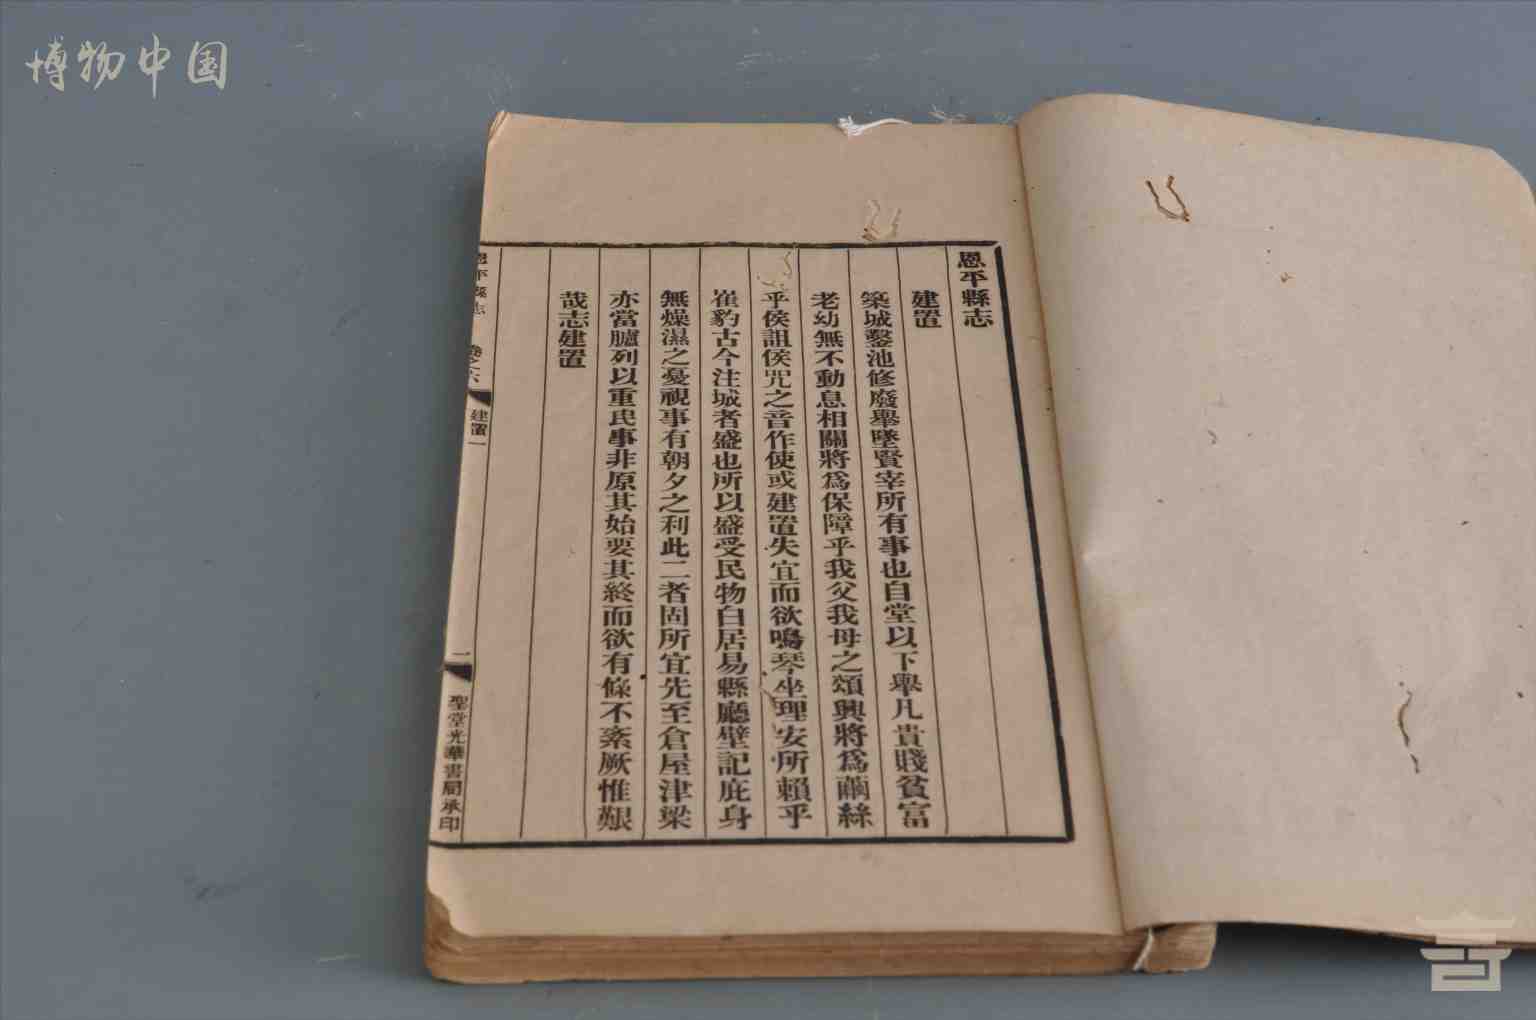 博物中国
恩平縣志
建置
築城鑿池修廢舉墜賢宰所有事也自堂以下舉凡貴賤貧富
老幼無不動息相關將為保障乎我父我母之頌興將為繭絲
乎侯詛侯咒之音作使或建置失宜而欲鳴琴坐理安所賴乎
崔豹古今注城者盛也所以盛受民物白居易縣廳壁記庇身
無燥濕之憂視事有朝夕之利此二者固所宜先至倉屋津梁
亦當臚列以重民事非原其始要其終而欲有條不紊厥惟艱
哉志建置
恩平縣志
卷之六
建置一
一
聖堂光華書局承印